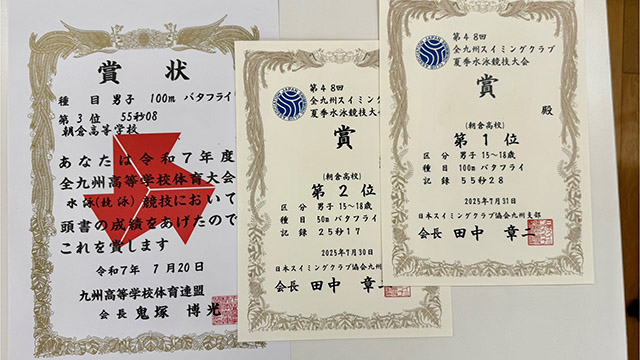 賞状
種目 男子 100m バタフライ
第3位 55秒08
朝倉高等学校
あなたは令和7年度
全九州高等学校体育大会
水泳(競泳)競技において
頭書の成績をあげたので
これを賞します
令和7年 7月20日
九州高等学校体育連盟
会長 鬼塚 博光
第48回
全九州スイミングクラブ
夏季水泳競技大会
賞
(朝倉高校)
第2位
区分 男子15〜18歳
種目 50m バタフライ
記録 25秒17
2025年7月30日
日本スイミングクラブ協会九州
会長 田中 章二
第48回
全九州スイミングクラブ
夏季水泳競技大会
賞
殿
(朝倉高校)
第1位
区分 男子15〜18歳
種目 100m バタフライ
記録 55秒28
2025年7月31日
日本スイミングクラブ協会九州支部
会長 田中 章二